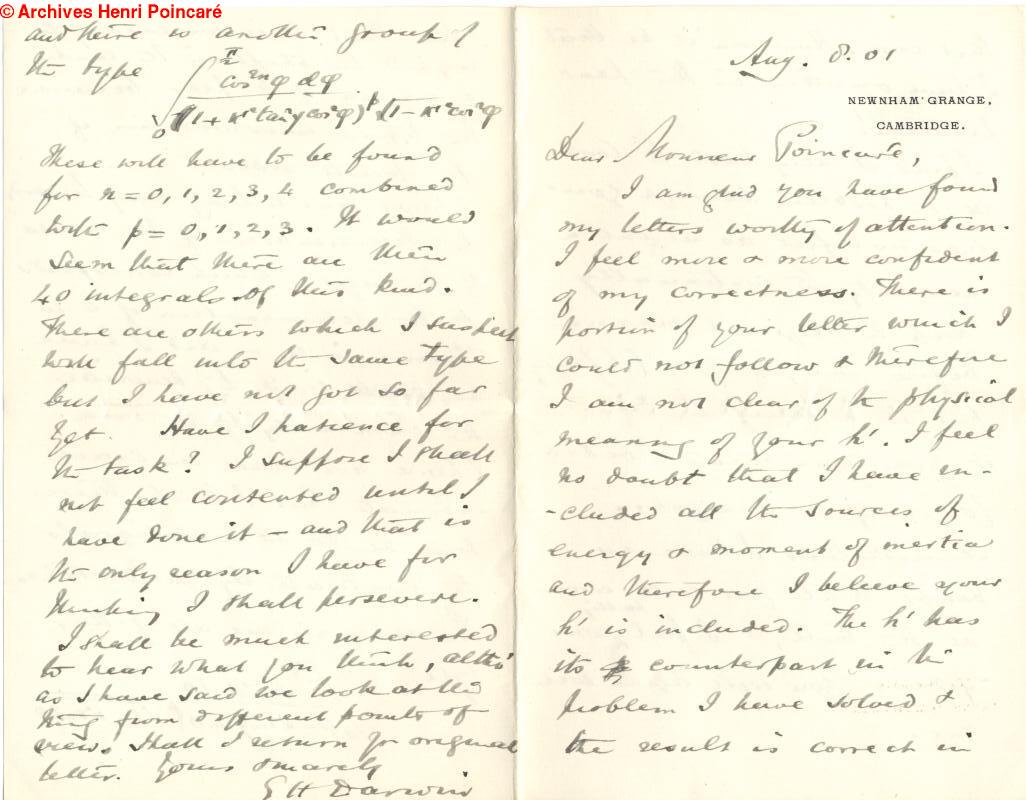 © Archives Henri Poincaré
Aug. 8. 01
NEWNHAM GRANGE,
CAMBRIDGE.
Dear Monsieur Poincaré,
I am glad you have found
my letters worthy of attention.
I feel more & more confident
of my correctness. There is
portion of your letter which I
could not follow & therefore
I am not clear of the physical
meaning of your h'. I feel
no doubt that I have in-
-cluded all the sources of
energy & moment of inertia
and therefore I believe your
h' is included. The h' has
its counterpart in the
problem I have solved &
the result is correct in
and there is another group of
the type ∫₀^{π/2} cos²ⁿφ dφ / (1 + κ² tan²γ cos²φ)^p √1 − κ² cos²φ
These will have to be found
for n = 0, 1, 2, 3, 4 combined
with p = 0, 1, 2, 3. It would
seem that there are then
40 integrals of this kind.
There are others which I suspect
will fall into the same type
but I have not got so far
yet. Have I patience for
the task? I suppose I shall
not feel contented until I
have done it – and that is
the only reason I have for
thinking I shall persevere.
I shall be much interested
to hear what you think, altho'
as I have said we look at the
thing from different points of
view. Shall I return yr original
letter. Yours sincerely
G H Darwin